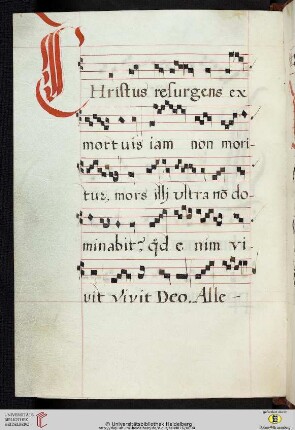 CHristus resurgens ex
mortuis iam non mori-
tur, mors illi ultra nō do-
minabit. qd e nim vi-
vit Vivit Deo. Alle-
UNIVERSITÄTS-
BIBLIOTHEK
HEIDELBERG
© Universitätsbibliothek Heidelberg